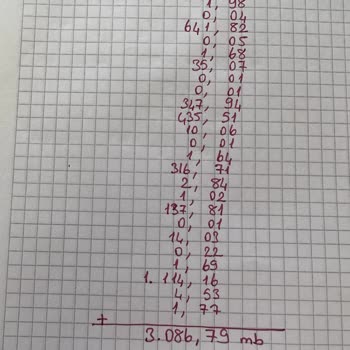 1, 98
0, 04
641, 82
0, 05
1, 68
35, 07
0, 01
0, 01
347, 94
435, 51
10, 06
0, 01
1, 64
316, 71
2, 84
1, 02
137, 81
0, 01
14, 03
0, 22
1, 69
1.114, 16
4, 53
1, 77
+
3.086, 79 mb